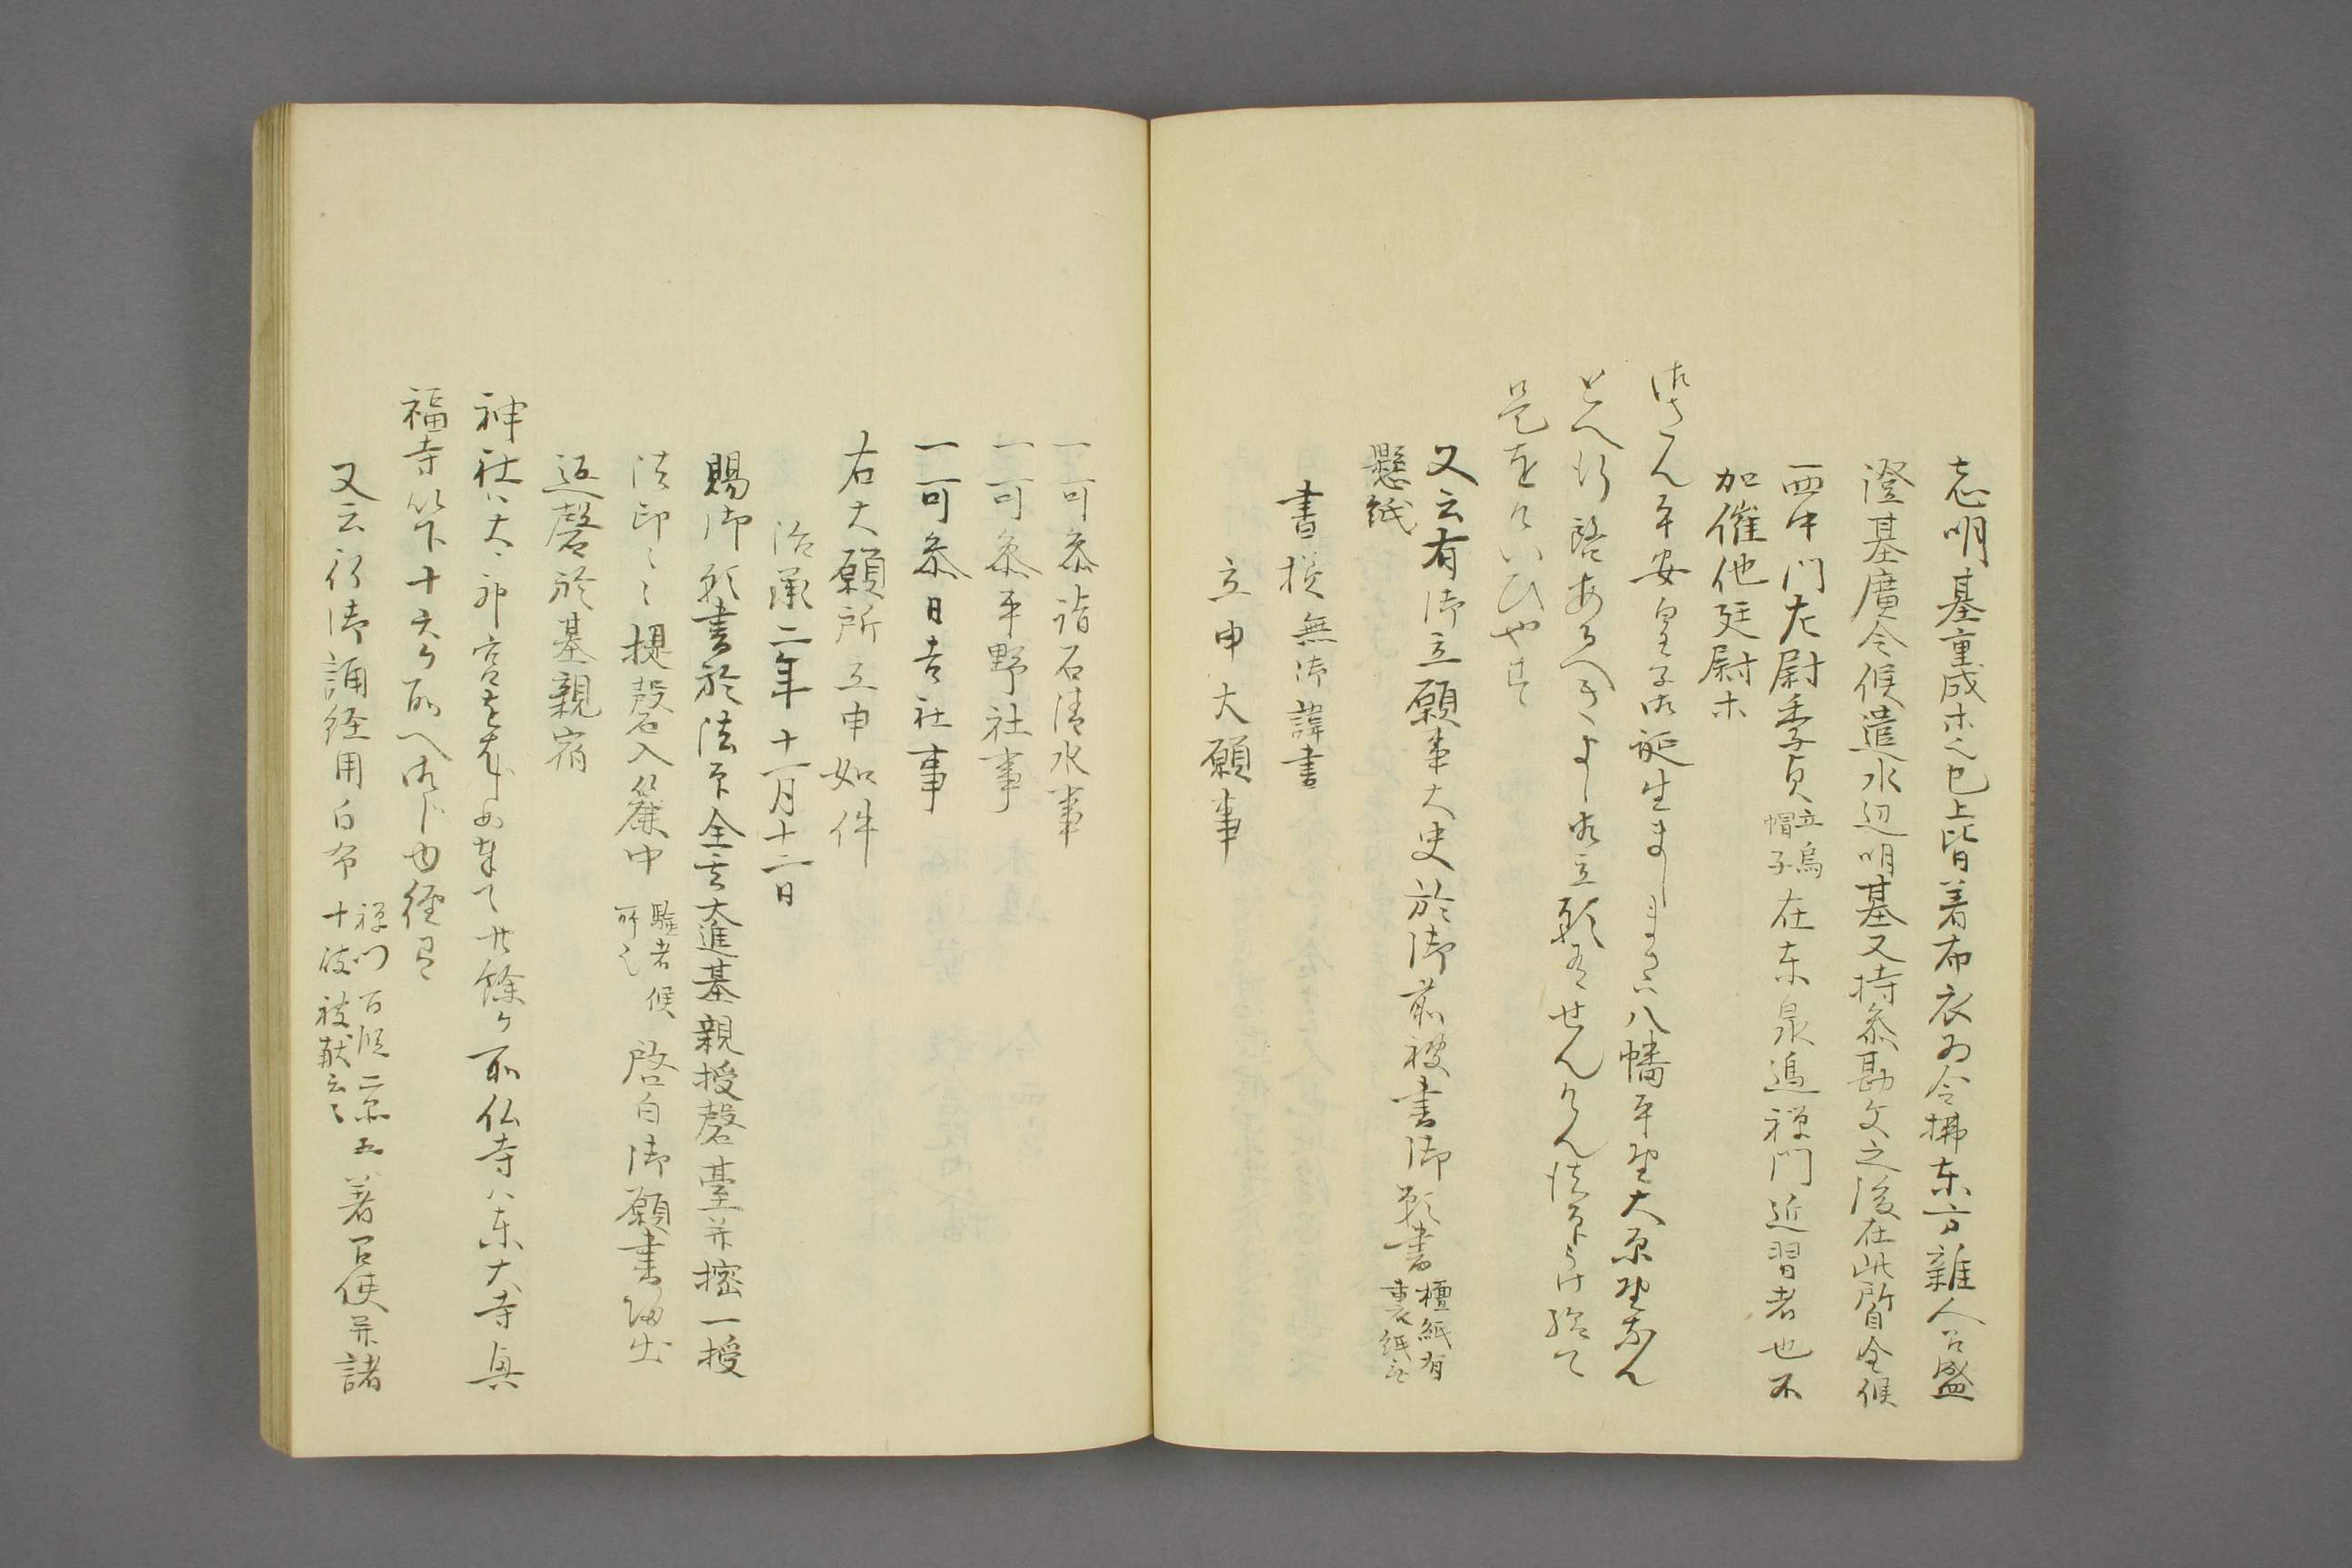 志明基重成ホ之已上皆着布衣為令拂東方雜人召盛
澄基廣令候遣水辺明基又持参勘文之後在此所自全候
西中門左尉季貞立烏帽子在東泉進禅門近習者也不
加催他廷尉ホ
御さん平安皇子御誕生ましまさは八幡平野大原野なん
とへ行啓あるへきよし御立願有せんけん法印うけ給て
是をけいひやくす
又云有御立願事大史於御前被書御願書檀紙有裏紙無
懸紙
書様無御諱書
立申大願事
一可参詣石清水事
一可参平野社事
一可参日吉社事
右大願所立申如件
治承二年十一月十二日
賜御願書於法印全玄大進基親授磬臺并撞一授
法印々々提磬入簾中驗者候所也啓白御願書帰出
返磬於基親宿
神社は太神宮をはしめ奉て廿餘ケ所仏寺は東大寺興
福寺以下十六ケ所へ御
又云行御誦経用白布禅門百段二品五十段被献云々著召使并諸